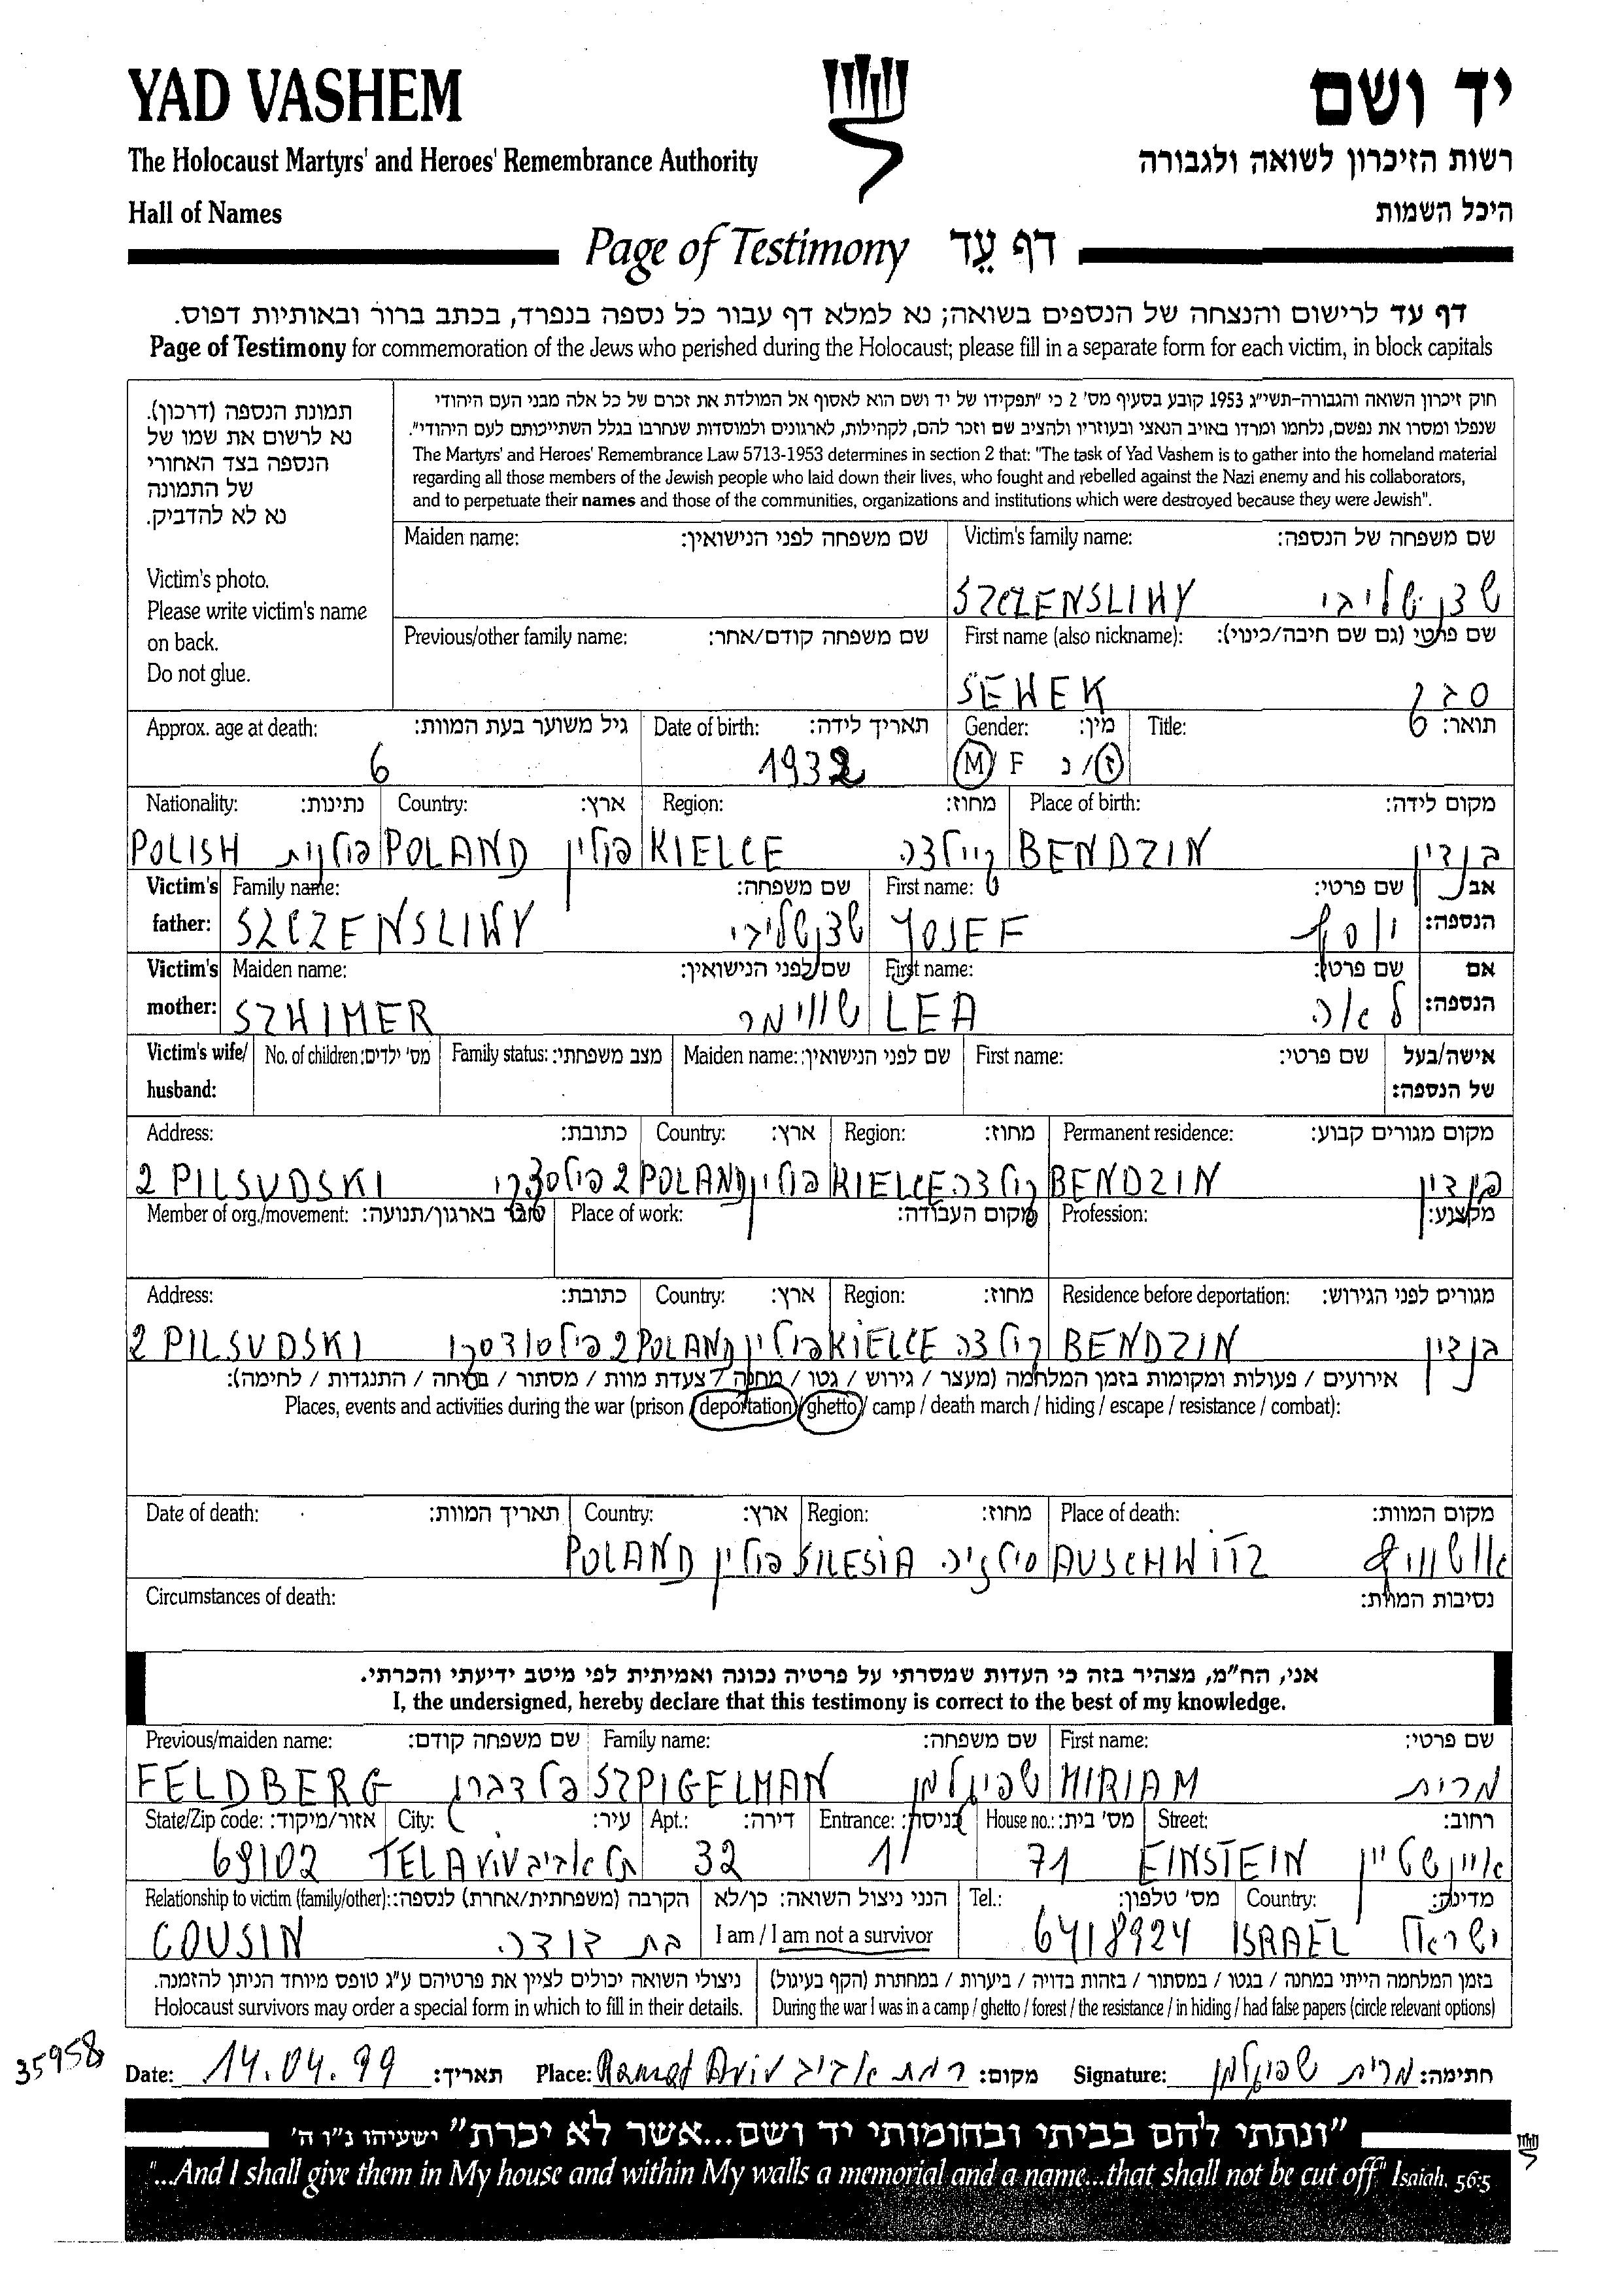 YAD VASHEM
יד ושם
The Holocaust Martyrs' and Heroes' Remembrance Authority
רשות הזיכרון לשואה ולגבורה
Hall of Names
היכל השמות
Page of Testimony דף עֵד
דף עד לרישום והנצחה של הנספים בשואה; נא למלא דף עבור כל נספה בנפרד, בכתב ברור ובאותיות דפוס.
Page of Testimony for commemoration of the Jews who perished during the Holocaust; please fill in a separate form for each victim, in block capitals
תמונת הנספה (דרכון).
נא לרשום את שמו של
הנספה בצד האחורי
של התמונה
נא לא להדביק.
Victim's photo.
Please write victim's name
on back.
Do not glue.
חוק זיכרון השואה והגבורה-תשי"ג 1953 קובע בסעיף מס' 2 כי "תפקידו של יד ושם הוא לאסוף אל המולדת את זכרם של כל אלה מבני העם היהודי
שנפלו ומסרו את נפשם, נלחמו ומרדו באויב הנאצי ובעוזריו ולהציב שם וזכר להם, לקהילות, לארגונים ולמוסדות שנחרבו בגלל השתייכותם לעם היהודי".
The Martyrs' and Heroes' Remembrance Law 5713-1953 determines in section 2 that: "The task of Yad Vashem is to gather into the homeland material
regarding all those members of the Jewish people who laid down their lives, who fought and rebelled against the Nazi enemy and his collaborators,
and to perpetuate their names and those of the communities, organizations and institutions which were destroyed because they were Jewish".
Maiden name: שם משפחה לפני הנישואין: Victim's family name: שם משפחה של הנספה:
SZCZENSLIWY שצנשליבי
Previous/other family name: שם משפחה קודם/אחר: First name (also nickname): שם פרטי (גם שם חיבה/כינוי):
SEWEK סבק
Approx. age at death: גיל משוער בעת המוות: Date of birth: תאריך לידה: Gender: מין: Title: תואר:
6 1932 M F ז/נ
Nationality: נתינות: Country: ארץ: Region: מחוז: Place of birth: מקום לידה:
POLISH פולנית POLAND פולין KIELCE קיילצה BENDZIN בנדין
Victim's father: Family name: שם משפחה: First name: שם פרטי: אב הנספה:
SZCZENSLIWY שצנשליבי YOSEF יוסף
Victim's mother: Maiden name: שם לפני הנישואין: First name: שם פרטי: אם הנספה:
SZWIMER שווימר LEA לאה
Victim's wife/ husband: No. of children: מס' ילדים: Family status: מצב משפחתי: Maiden name: שם לפני הנישואין: First name: שם פרטי: אישה/בעל של הנספה:
Address: כתובת: Country: ארץ: Region: מחוז: Permanent residence: מקום מגורים קבוע:
2 PILSUDSKI 2 POLAND פולין KIELCE קילצה BENDZIN בנדין
Member of org./movement: חבר בארגון/תנועה: Place of work: מקום העבודה: Profession: מקצוע:
Address: כתובת: Country: ארץ: Region: מחוז: Residence before deportation: מגורים לפני הגירוש:
2 PILSUDSKI פילסודסקי 2 POLAND פולין KIELCE קילצה BENDZIN בנדין
אירועים / פעולות ומקומות בזמן המלחמה (מעצר / גירוש / גטו / מחנה / צעדת מוות / מסתור / בריחה / התנגדות / לחימה):
Places, events and activities during the war (prison / deportation / ghetto / camp / death march / hiding / escape / resistance / combat):
Date of death: תאריך המוות: Country: ארץ: Region: מחוז: Place of death: מקום המוות:
POLAND פולין SILESIA סילזיה AUSCHWITZ אושוויץ
Circumstances of death: נסיבות המוות:
אני, הח"מ, מצהיר בזה כי העדות שמסרתי על פרטיה נכונה ואמיתית לפי מיטב ידיעתי והכרתי.
I, the undersigned, hereby declare that this testimony is correct to the best of my knowledge.
Previous/maiden name: שם משפחה קודם: Family name: שם משפחה: First name: שם פרטי:
FELDBERG פלדברג SZPIGELMAN שפיגלמן MIRIAM מרים
State/Zip code: אזור/מיקוד: City: עיר: Apt.: דירה: Entrance: כניסה: House no.: מס' בית: Street: רחוב:
69102 TEL AVIV תל אביב 32 1 71 EINSTEIN איינשטיין
Relationship to victim (family/other): הקרבה (משפחתית/אחרת) לנספה: הנני ניצול השואה: כן/לא Tel.: מס' טלפון: Country: מדינה:
COUSIN בת דודה I am / I am not a survivor 6418924 ISRAEL ישראל
ניצולי השואה יכולים לציין את פרטיהם ע"ג טופס מיוחד הניתן להזמנה.
Holocaust survivors may order a special form in which to fill in their details.
בזמן המלחמה הייתי במחנה / בגטו / במסתור / בזהות בדויה / ביערות / במחתרת (הקף בעיגול)
During the war I was in a camp / ghetto / forest / the resistance / in hiding / had false papers (circle relevant options)
35958
Date: 14.04.99 תאריך: Place: Ramat Aviv רמת אביב מקום: Signature: מרים שפיגלמן חתימה:
"ונתתי להם בביתי ובחומותי יד ושם...אשר לא יכרת" ישעיהו נ"ו ה'
"...And I shall give them in My house and within My walls a memorial and a name...that shall not be cut off." Isaiah, 56:5